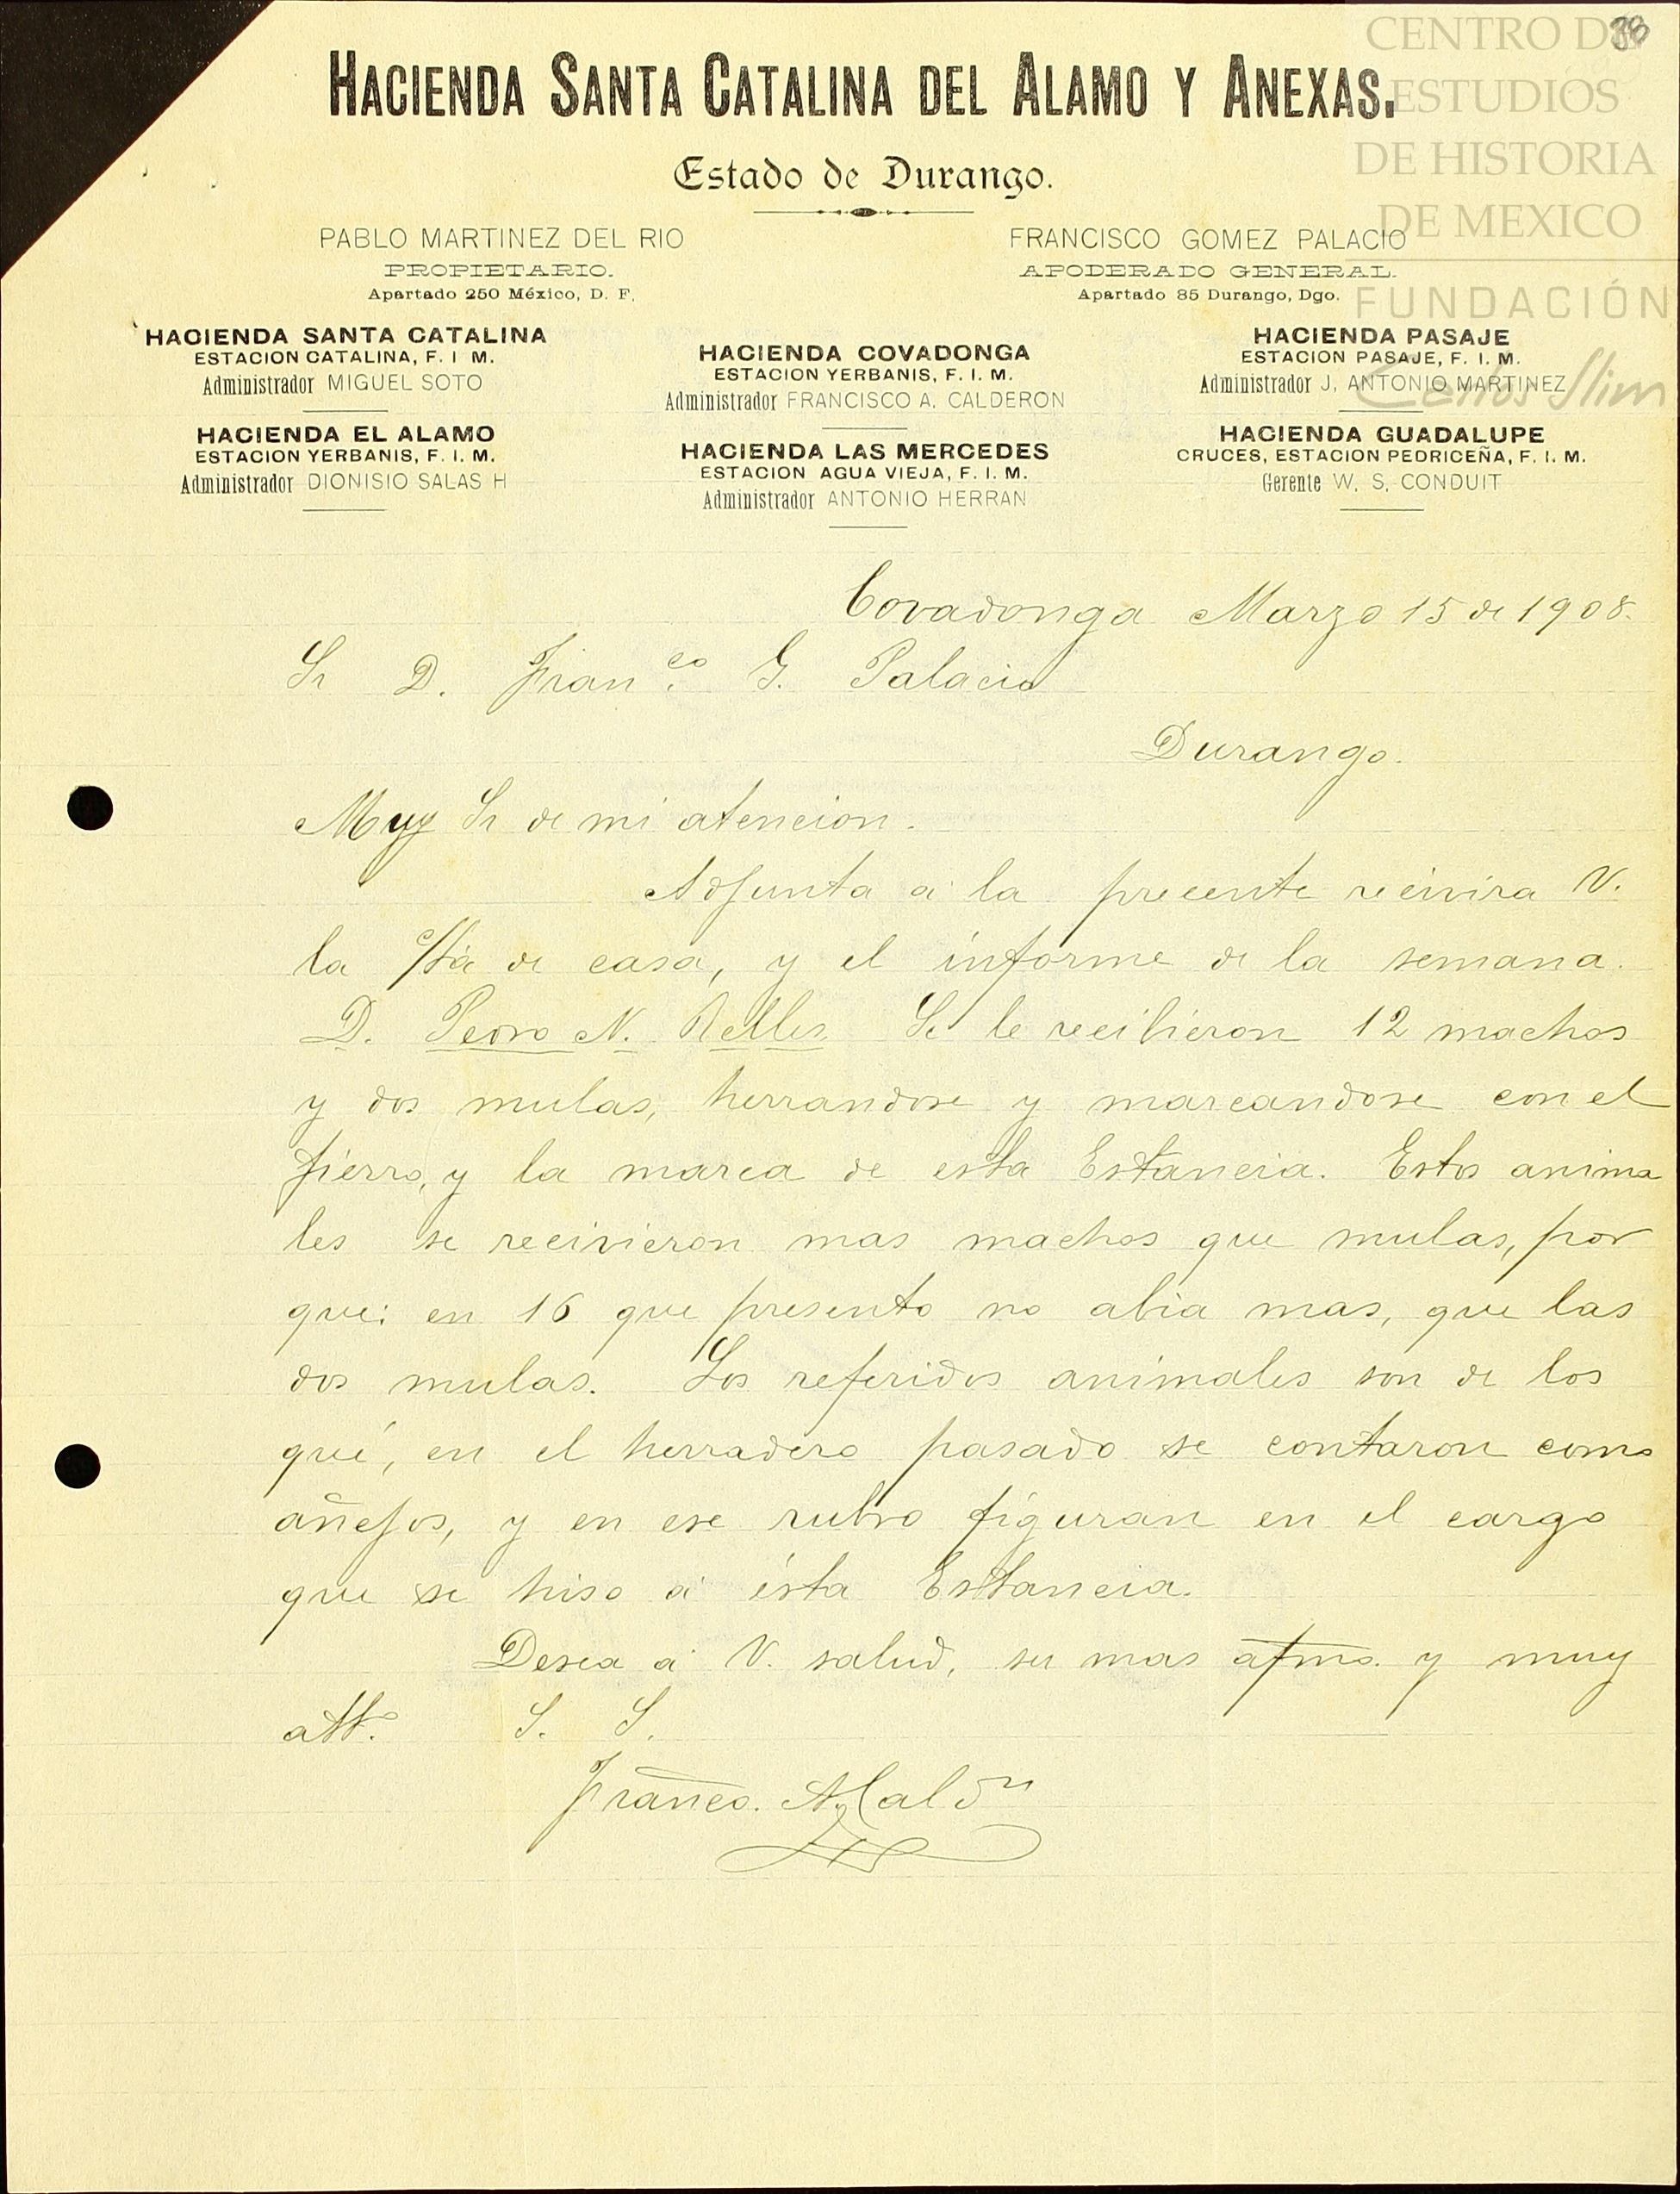 38
CENTRO DE
ESTUDIOS
DE HISTORIA
DE MEXICO
FUNDACIÓN
Carlos Slim
HACIENDA SANTA CATALINA DEL ALAMO Y ANEXAS.
Estado de Durango.
PABLO MARTINEZ DEL RIO
PROPIETARIO.
Apartado 250 México, D. F.
FRANCISCO GOMEZ PALACIO
APODERADO GENERAL.
Apartado 85 Durango, Dgo.
HACIENDA SANTA CATALINA
ESTACION CATALINA, F. I M.
Administrador MIGUEL SOTO
HACIENDA EL ALAMO
ESTACION YERBANIS, F. I. M.
Administrador DIONISIO SALAS H
HACIENDA COVADONGA
ESTACION YERBANIS, F. I. M.
Administrador FRANCISCO A. CALDERON
HACIENDA LAS MERCEDES
ESTACION AGUA VIEJA, F. I. M.
Administrador ANTONIO HERRAN
HACIENDA PASAJE
ESTACION PASAJE, F. I. M.
Administrador J. ANTONIO MARTINEZ
HACIENDA GUADALUPE
CRUCES, ESTACION PEDRICEÑA, F. I. M.
Gerente W. S. CONDUIT
Covadonga Marzo 15 de 1908.
Sr D. Fran.co G. Palacio
Durango.
Muy Sr de mi atencion.
Adjunta a la precente recivira V.
la c/ta de casa, y el informe de la semana.
D. Pedro N. Relles Se le recibieron 12 machos
y dos mulas, herrandose y marcandose con el
fierro, y la marca de esta Estancia. Estos anima
les se recivieron mas machos que mulas, por
que: en 16 que presento no abia mas, que las
dos mulas. Los referidos animales son de los
qué, en el herradero pasado se contaron como
añejos, y en ese rubro figuran en el cargo
que se hiso á ésta Estancia.
Desea á V. salud, su mas afmo. y muy
atto. S. S.
Franco. A. Caldn